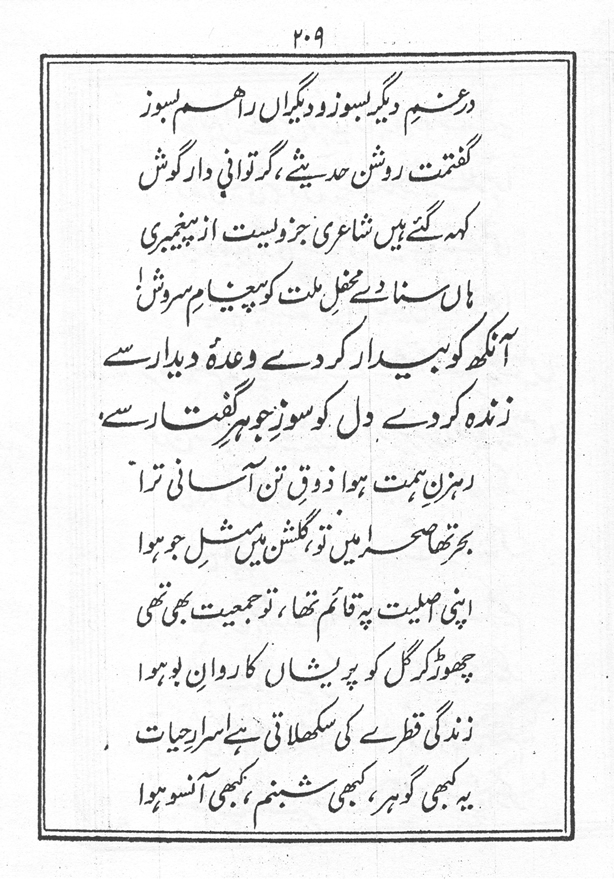 ۲۰۹
در غمِ دیگر بسوز و دیگراں را ہم بسوز
گفتمت روشن حدیثے، گر توانی دار گوش
کہہ گئے ہیں شاعری جزویست از پیغمبری
ہاں سنا دے محفلِ ملت کو پیغامِ سروش!
آنکھ کو بیدار کر دے وعدۂ دیدار سے
زندہ کر دے دل کو سوزِ جوہرِ گفتار سے
رہزنِ ہمت ہوا ذوقِ تن آسانی ترا
بحر تھا صحرا میں تو، گلشن میں مثلِ جو ہوا
اپنی اصلیت پہ قائم تھا، تو جمعیت بھی تھی
چھوڑ کر گل کو پریشاں کاروانِ بو ہوا
زندگی قطرے کی سکھلاتی ہے اسرارِ حیات
یہ کبھی گوہر، کبھی شبنم، کبھی آنسو ہوا